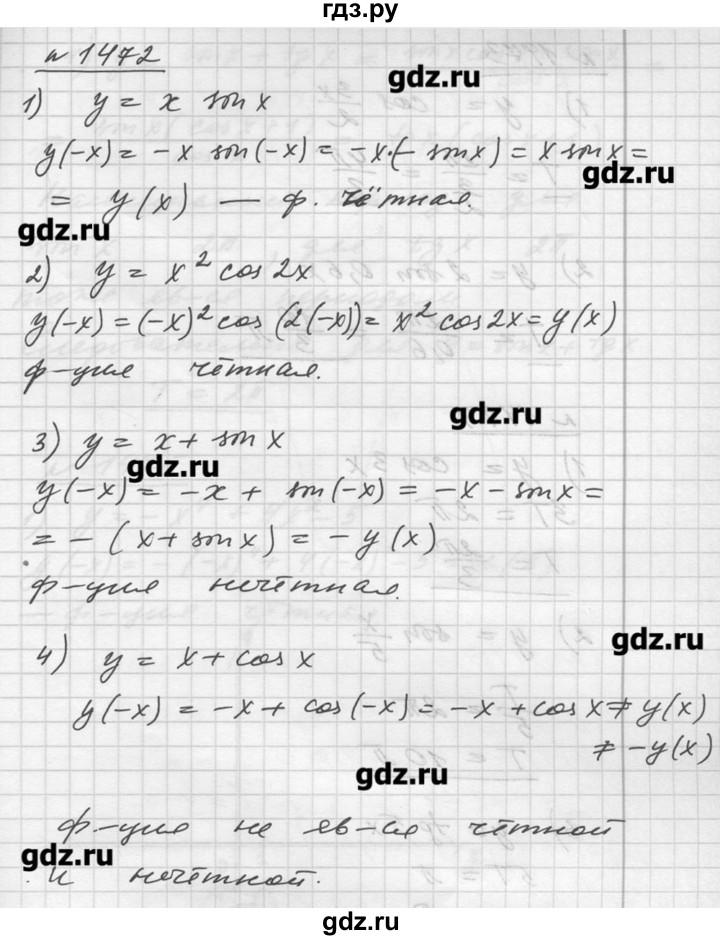 гдз.ру
№ 1472
gdz.ru
1) y = x sin x
y(-x) = -x sin(-x) = -x·(-sin x) = x sin x =
gdz.ru
= y(x) — ф. чётная.
gdz.ru
2) y = x² cos 2x
y(-x) = (-x)² cos (2(-x)) = x² cos 2x = y(x)
ф-ция чётная.
gdz.ru
3) y = x + sin x
gdz.ru
y(-x) = -x + sin(-x) = -x - sin x =
= - (x + sin x) = - y(x)
ф-ция нечётная.
gdz.ru
4) y = x + cos x
y(-x) = -x + cos(-x) = -x + cos x ≠ y(x)
≠ -y(x)
gdz.ru
ф-ция не яв-ся чётной
gdz.ru
и нечётной.
gdz.ru